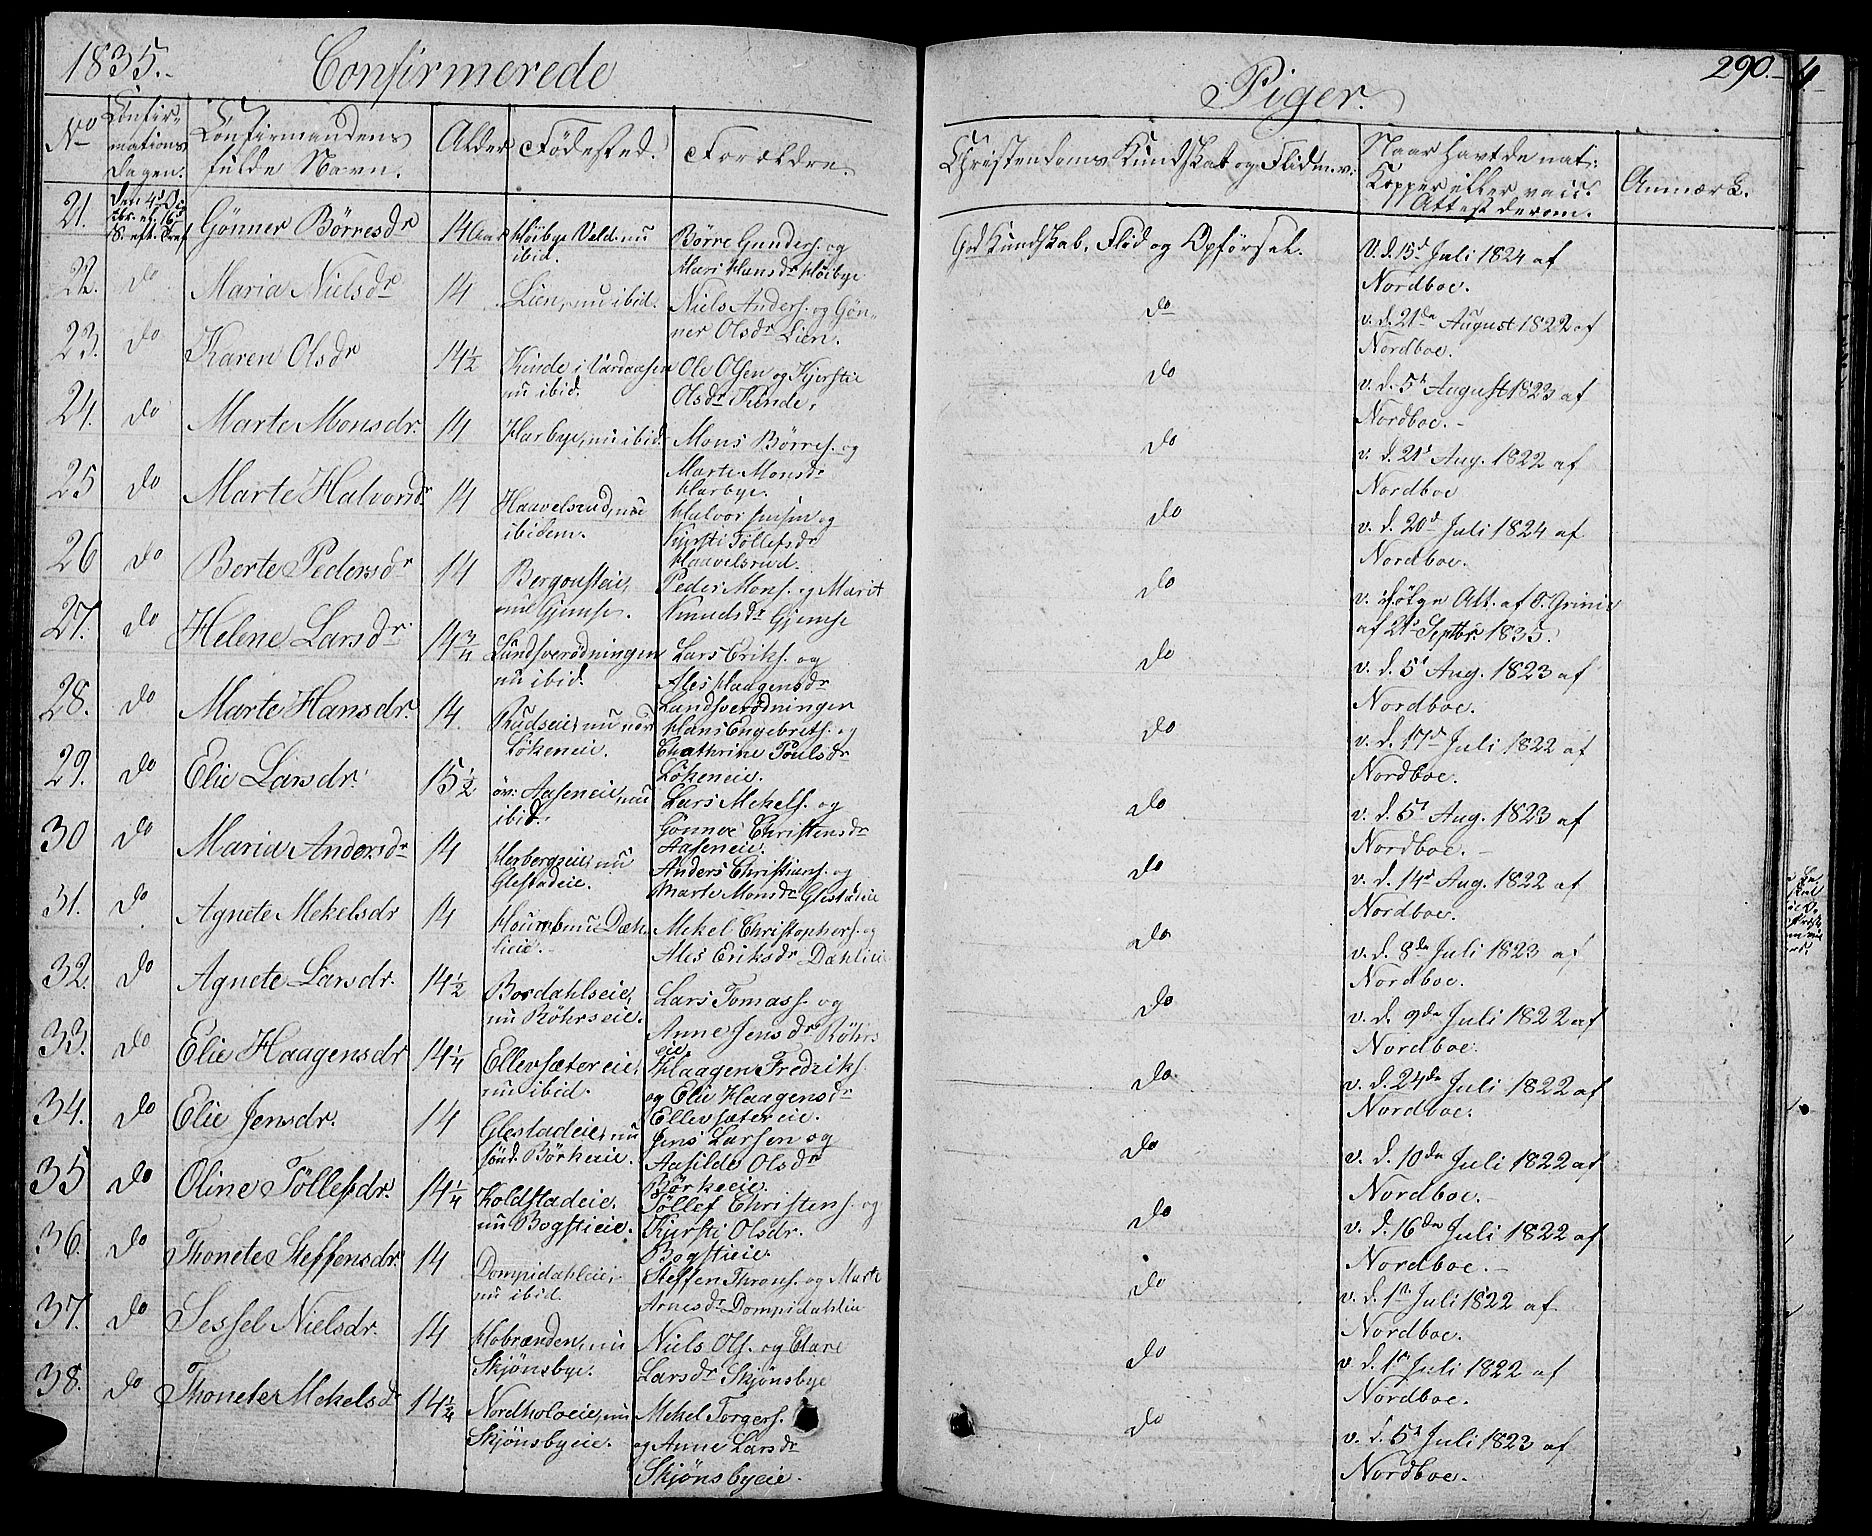 1835. Confirmerede
Piger. 290.
No Confir- mations Dagen. Confirmandens fulde Navn. Alder Fødested. Forældre. Christendoms Kundskab og Flid m.v: Naar havt de nat: Kopper eller vacc. Attest derom. Anmærk.
21. Gönner Börresdr 14 Aar Höibye Vald. nu ibid. Börre Gunders. og Mari Hansdr Höibye Gd Kundskab, Flid og Opførsel. V. d. 15d Juli 1824 af Nordboe.
22. do Maria Nielsdr 14 Lien, nu ibid. Niels Anders. og Gön- ner Olsdr Lien. do v. d. 21de August 1822 af Nordboe.
23. do Karen Olsdr 14 1/2 Kinde i Vardaasen nu ibid. Ole Olsen og Kjerstie Olsdr Kinde, do v. d. 5t August 1823 af Nordboe. -
24. do Marte Monsdr. 14 Harbye, nu ibid. Mons Börres. og Marte Monsdr Harbye. do v. d. 21d Aug. 1822 af Nordboe
25 do Marte Halvorsdr. 14 Haavelsrud, nu ibidem. Halvor Jensen og Kjersti Töllefsdr Haavelsrud. do v. d. 20d Juli 1824 af Nordboe.
26 do Berte Pedersdr 14 nu Gjemse. Peder Mons. og Marit Knudsdr Gjemse do v. ifölge Att. af O. af 21d Septbr. 1835.
27. do Helene Larsdr. 14 3/4 Lundsverödningen nu ibid. Lars Eriks. og Ales Haagensdr Lundsverödningen do v. d. 5t Aug. 1823 af Nordboe.
28. do Marte Hansdr. 14. Rudseie, nu Lökeneie. Hans Engebrets. og Chathrine Poulsdr Lökeneie. do v. d. 17d Juli 1822 af Nordboe.
29. do Elie Larsdr. 15 1/2 öv: Aaseneie, nu ibid. Lars Mekels. og Gönnor Christensdr Aaseneie. do v. d. 5t Aug. 1823 af Nordboe. -
30 do Maria Andersdr 14 Herbergseie, nu Glestadeie. Anders Christians. og Marte Monsdr Glestadeie do v. d. 14d Aug. 1822 af Nordboe.
31. do Agnete Mekelsdr 14 nu Dæh- lieie. Mekel Christophers. og Ales Eriksdr Dahlieie do v. d. 8de Juli 1823 af Nordboe.
32. do Agnete Larsdr. 14 1/2 Bordahlseie, nu Röhrseie. Lars Tomass. og Anne Jensdr Röhrs eie. do v. d. 9de Juli 1822 af Nordboe.
33. do Elie Haagensdr 14 1/4 Ellevsætereie, nu ibid. Haagen Fredriks. og Elie Haagensdr Ellevsætereie. do v. d. 24de Juli 1822 af Nordboe.
34. do Elie Jensdr. 14 Glestadeie, nu sönd. Börkeeie. Jens Larsen og Aasilde Olsdr Börkeeie. do v. d. 10de Juli 1822 af Nordboe. -
35 do Oline Töllefsdr. 14 1/4 Koldstadeie. nu Bogstieie. Töllef Christens. og Kjersti Olsdr. Bogstieie. do v. d. 16de Juli 1822 af Nordboe. -
36. do Thonete Steffensdr. 14 Dompidahleie, nu ibid. Steffen Throns. og Marte Arnesdr Dompidahleie do v. d. 1ste Juli 1822 af Nordboe.
37. do Sessel Nielsdr. 14 Hobrænden, nu Skjönsbye. Niels Ols. og Clare Larsdr Skjönsbye do v. d. 1ste Juli 1822 af Nordboe.
38. do Thonete Mekelsdr 14 Nordholoeie, nu Skjönsbyeie. Mekel Torgers. og Anne Larsdr Skjönsbyeie. do v. d. 5t Juli 1823 af Nordboe.